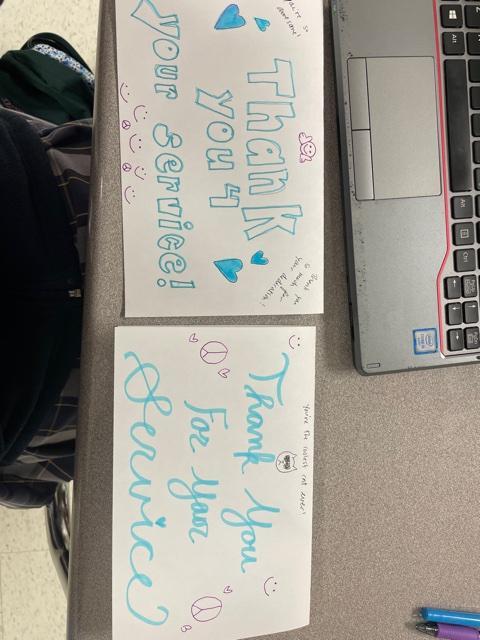 You're so awesome!
Thank
you 4
your service!
Thank you
so much
for
your dedication!
You're the coolest cat ever!
Thank You
For Your
Service
Alt
Alt
Ctrl
intel